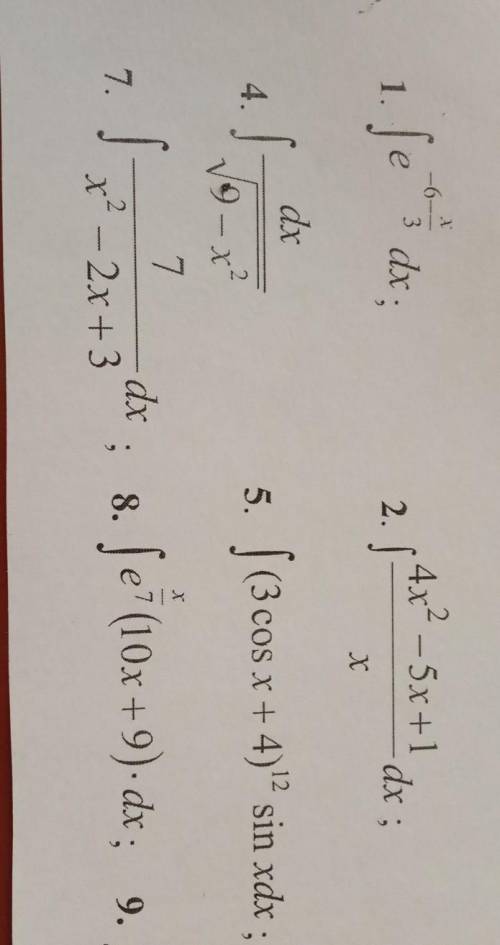 1. ∫ e^{-6-\frac{x}{3}} dx ; 2. ∫ \frac{4x^2 - 5x + 1}{x} dx ;
4. ∫ \frac{dx}{\sqrt{9 - x^2}} 5. ∫ (3 cos x + 4)^{12} sin xdx ;
7. ∫ \frac{7}{x^2 - 2x + 3} dx ; 8. ∫ e^{\frac{x}{7}} (10x + 9) · dx ; 9.